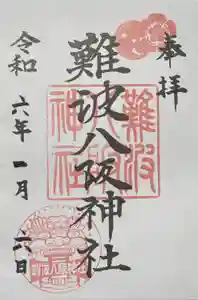 奉拝
難波八阪神社
難波
八阪
神社
令和六年一月六日